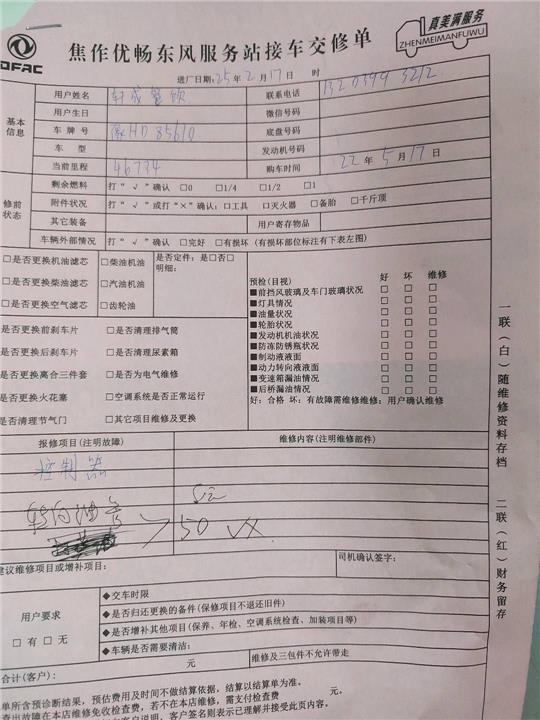 DFAC
焦作优畅东风服务站接车交修单
真美满服务
ZHENMEIMANFUWU
进厂日期:25年2月17日 时
基本信息
用户姓名
联系电话 132 0399 3212
用户生日 微信号码
车牌号 豫HD 85610 底盘号码
车型 发动机号码
当前里程 46734 购车时间 22年5月17日
修前状态
剩余燃料 打“√”确认 □0 □1/4 □1/2 □1
附件状况 打“√”或打“×”确认:□工具 □灭火器 □备胎 □千斤顶
其它装备 用户寄存物品
车辆外部情况 打“√”确认 □完好 □有损坏 (有损坏部位标注有下表左图)
□是否更换机油滤芯 □柴油机油 是否定件: 是□否□
明细:
□是否更换柴油滤芯 □汽油机油
□是否更换空气滤芯 □齿轮油
是否更换前刹车片 □是否清理排气筒
是否更换后刹车片 □是否清理尿素箱
是否更换离合三件套 □是否为电气维修
是否更换火花塞 □空调系统是否正常运行
是否清理节气门 □其它项目维修及更换
预检(目视) 好 坏 维修
■前挡风玻璃及车门玻璃状况 □ □ □
■灯具情况 □ □ □
■油量状况 □ □ □
■轮胎状况 □ □ □
■发动机机油状况 □ □ □
■防冻防锈瓶状况 □ □ □
■制动液液面 □ □ □
■动力转向液液面 □ □ □
■变速箱漏油情况 □ □ □
■后桥漏油情况 □ □ □
好: 合格 坏: 有故障需维修维修: 用户确认维修
报修项目(注明故障) 维修内容(注明维修部件)
控制器
转向油管
50
建议维修项目或增补项目:
司机确认签字:
用户要求
□有□无
◆交车时限
◆是否归还更换的备件(保修项目不退还旧件)
◆是否增补其他项目(保养、年检、空调系统检查、加装项目等)
◆车辆是否需要清洁:
合计(客户): 元 维修及三包件不允许带走
单所含预诊断结果, 预估费用及时间不做结算依据, 结算以结算单为准。
查出故障在本店维修免收检查费, 若不在本店维修, 需支付检查费 元。
客户签名则表示已理解并接受此页内容。
一联(白)随维修资料存档
二联(红)财务留存